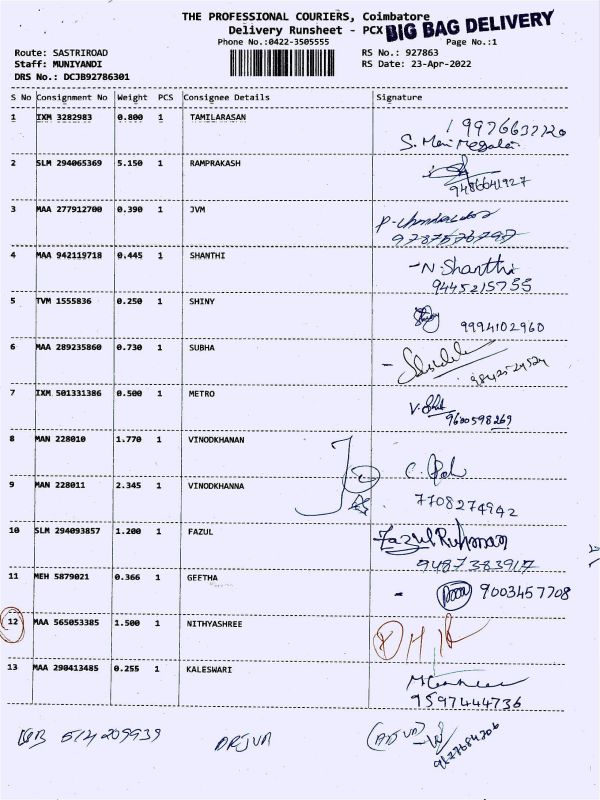 THE PROFESSIONAL COURIERS, Coimbatore
Delivery Runsheet - PCX BIG BAG DELIVERY
Phone No.:0422-3505555 Page No.:1
Route: SASTRIROAD RS No.: 927863
Staff: MUNIYANDI RS Date: 23-Apr-2022
DRS No.: DCJB92786301
S No Consignment No Weight PCS Consignee Details Signature
1 IXM 3282983 0.800 1 TAMILARASAN
S.
2 SLM 294065369 5.150 1 RAMPRAKASH
9486641927
3 MAA 277912700 0.390 1 JVM
4 MAA 942119718 0.445 1 SHANTHI N. Shanthi
9445215755
5 TVM 1555836 0.250 1 SHINY
9994102960
6 MAA 289235860 0.730 1 SUBHA
7 IXM 501331386 0.500 1 METRO
9600598269
8 MAN 228010 1.770 1 VINODKHANAN
9 MAN 228011 2.345 1 VINODKHANNA
7708274942
10 SLM 294093857 1.200 1 FAZUL Fazul Ruhman
9487383917
11 MEH 5879021 0.366 1 GEETHA
9003457708
12 MAA 565053385 1.500 1 NITHYASHREE
13 MAA 290413485 0.255 1 KALESWARI
9597444736
514209939